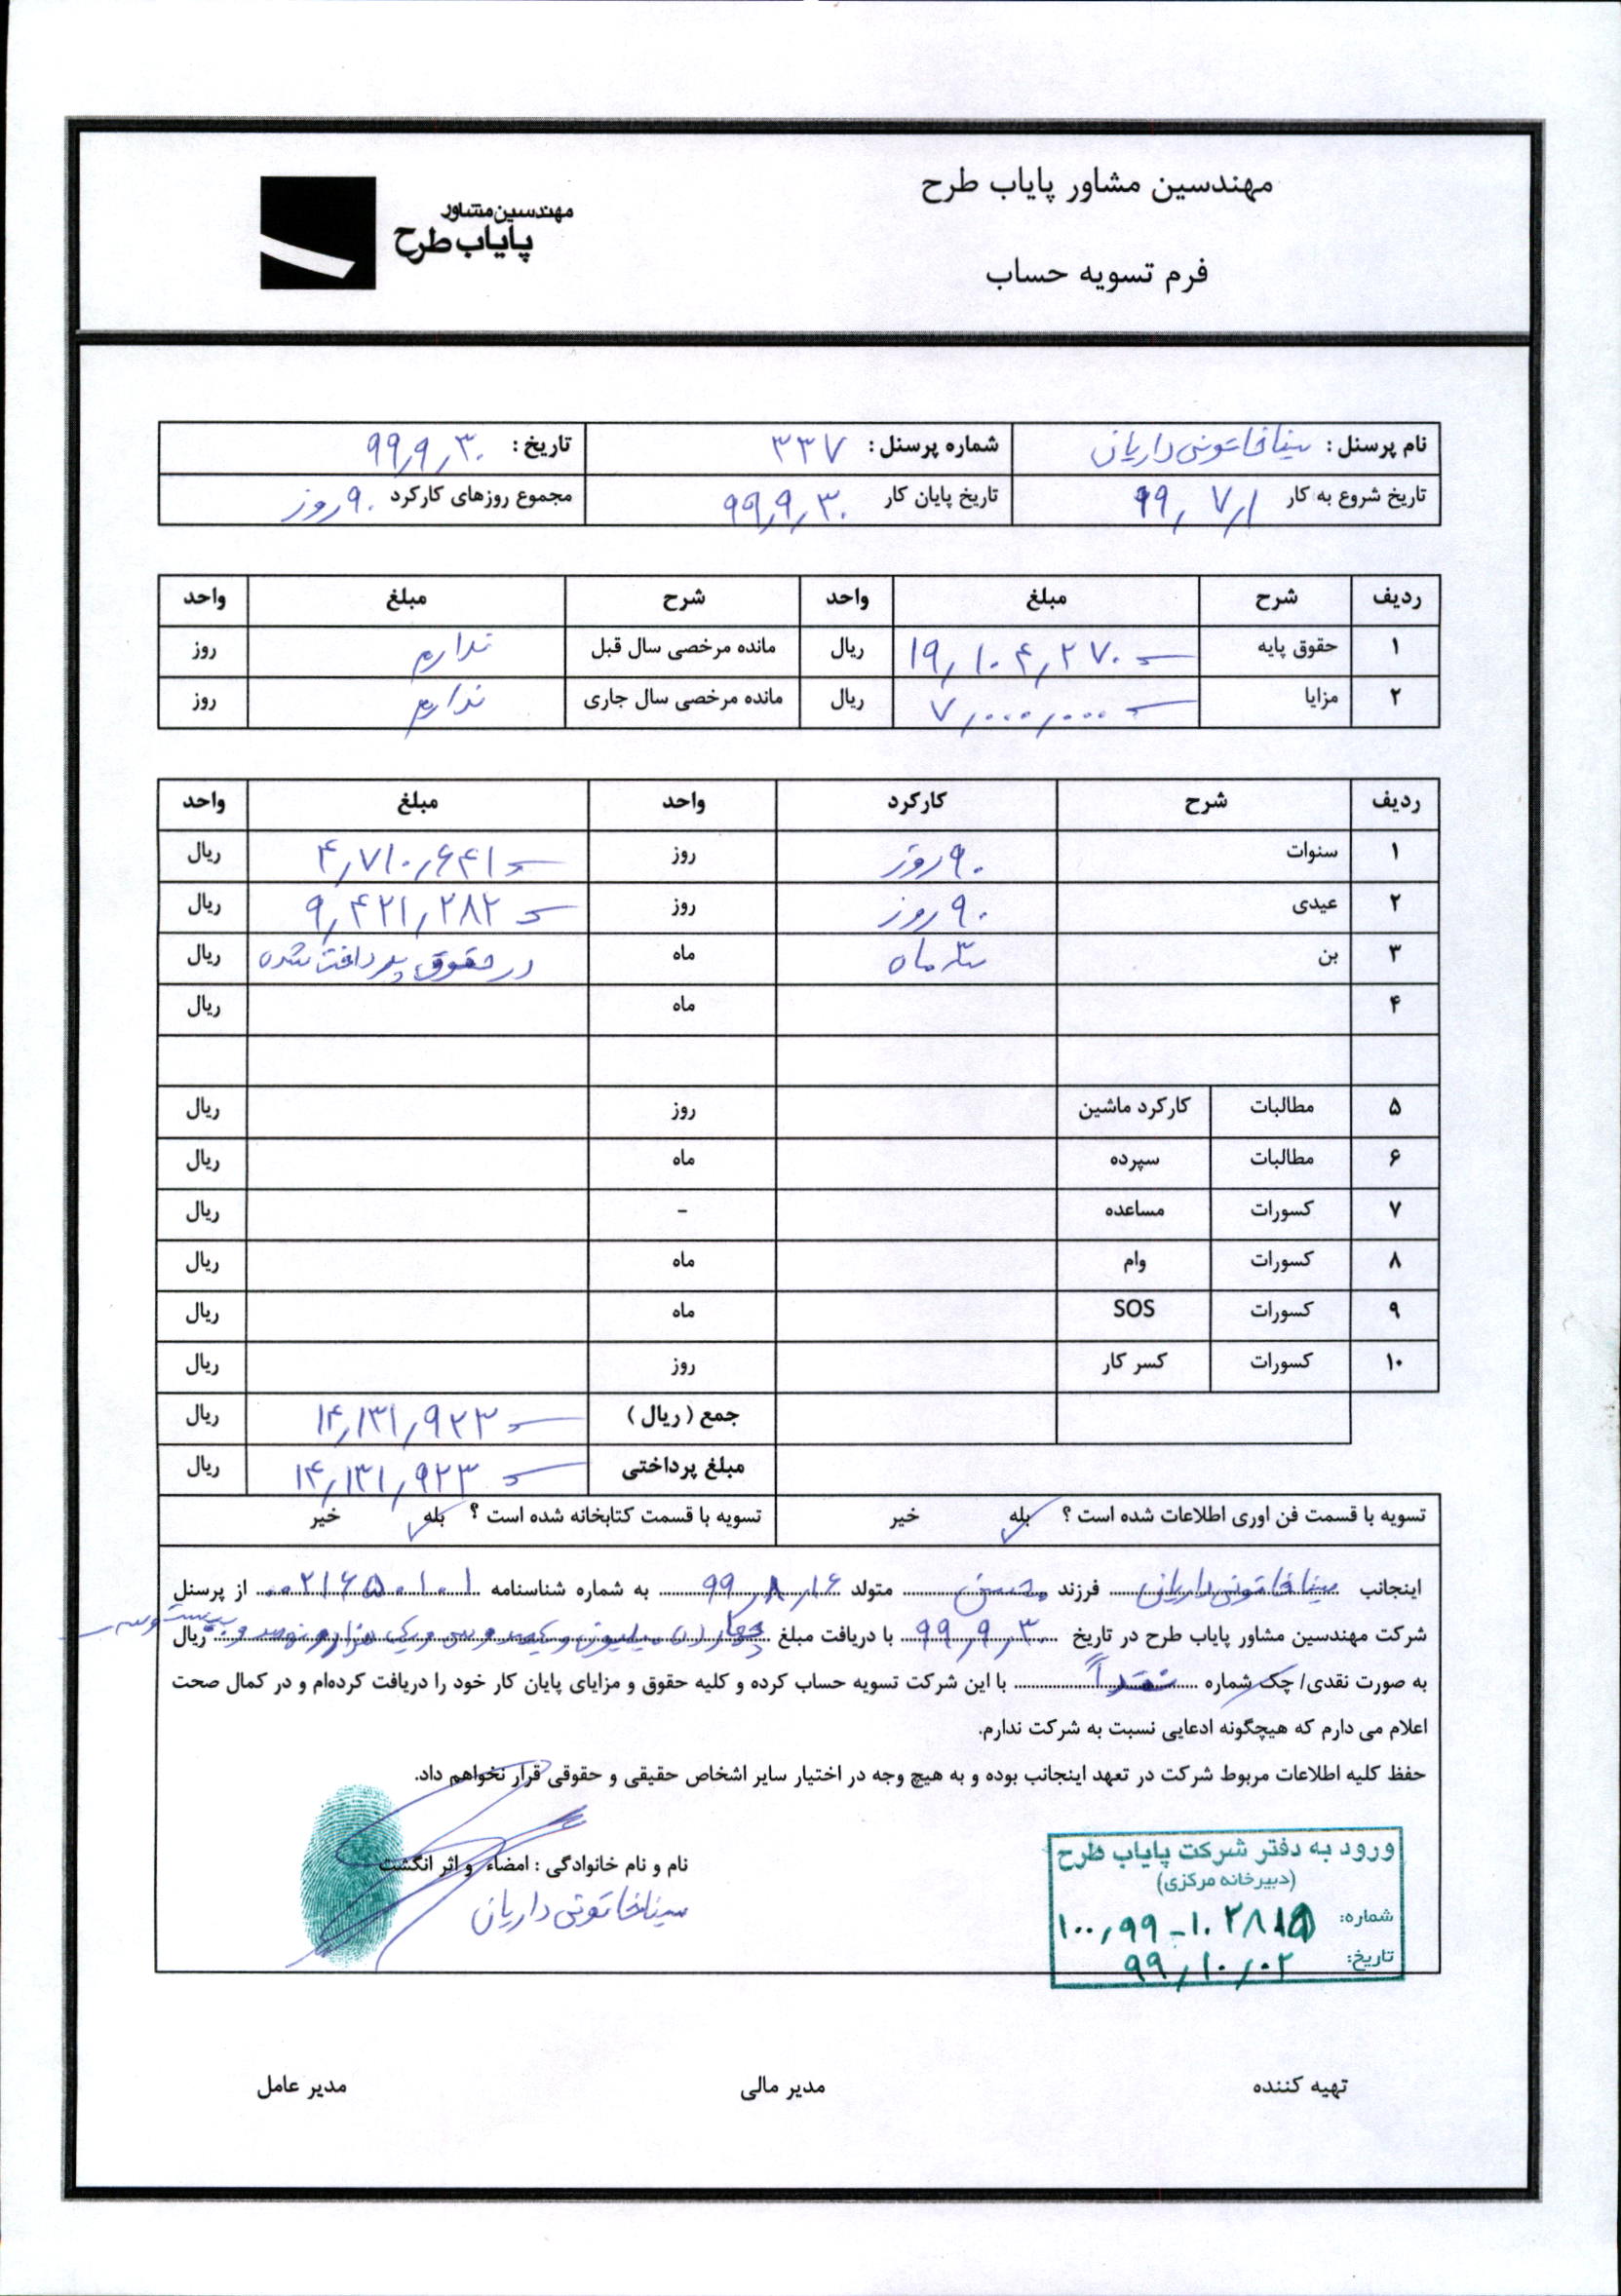 مهندسین مشاور پایاب طرح
مهندسین مشاور
پایاب طرح
فرم تسویه حساب
نام پرسنل : سینا خاتونی داریان شماره پرسنل : ۳۳۷ تاریخ : ۹۹٫۹٫۳۰
تاریخ شروع به کار ۹۹٫۷٫۱ تاریخ پایان کار ۹۹٫۹٫۳۰ مجموع روزهای کارکرد ۹۰ روز
ردیف شرح مبلغ واحد شرح مبلغ واحد
۱ حقوق پایه ۱۹٫۱۰۴٫۲۷۰ ریال مانده مرخصی سال قبل ندارم روز
۲ مزایا ۷٫۰۰۰٫۰۰۰ ریال مانده مرخصی سال جاری ندارم روز
ردیف شرح کارکرد واحد مبلغ واحد
۱ سنوات ۹۰ روز روز ۴٫۷۱۰٫۶۴۱ ریال
۲ عیدی ۹۰ روز روز ۹٫۴۲۱٫۲۸۲ ریال
۳ بن سه ماه ماه در حقوق پرداخت شده ریال
۴ ماه ریال
۵ مطالبات کارکرد ماشین روز ریال
۶ مطالبات سپرده ماه ریال
۷ کسورات مساعده - ریال
۸ کسورات وام ماه ریال
۹ کسورات SOS ماه ریال
۱۰ کسورات کسر کار روز ریال
جمع ( ریال ) ۱۴٫۱۳۱٫۹۲۳ ریال
مبلغ پرداختی ۱۴٫۱۳۱٫۹۲۳ ریال
تسویه با قسمت فن اوری اطلاعات شده است ؟ بله خیر تسویه با قسمت کتابخانه شده است ؟ بله خیر
اینجانب سینا خاتونی داریان فرزند محسن متولد ۹۹٫۸٫۱۶ به شماره شناسنامه ۰۰۲۱۶۵۰۱۰۱ از پرسنل
شرکت مهندسین مشاور پایاب طرح در تاریخ ۹۹٫۹٫۳۰ با دریافت مبلغ چهارده میلیون و یکصد و سی و یک هزار و نهصد و بیست و سه ریال
به صورت نقدی/ چک شماره نقداً با این شرکت تسویه حساب کرده و کلیه حقوق و مزایای پایان کار خود را دریافت کرده‌ام و در کمال صحت
اعلام می دارم که هیچگونه ادعایی نسبت به شرکت ندارم.
حفظ کلیه اطلاعات مربوط شرکت در تعهد اینجانب بوده و به هیچ وجه در اختیار سایر اشخاص حقیقی و حقوقی قرار نخواهم داد.
نام و نام خانوادگی : امضاء و اثر انگشت
سینا خاتونی داریان
ورود به دفتر شرکت پایاب طرح
(دبیرخانه مرکزی)
شماره:
تاریخ: ۹۹٫۱۰٫۰۲
تهیه کننده مدیر مالی مدیر عامل